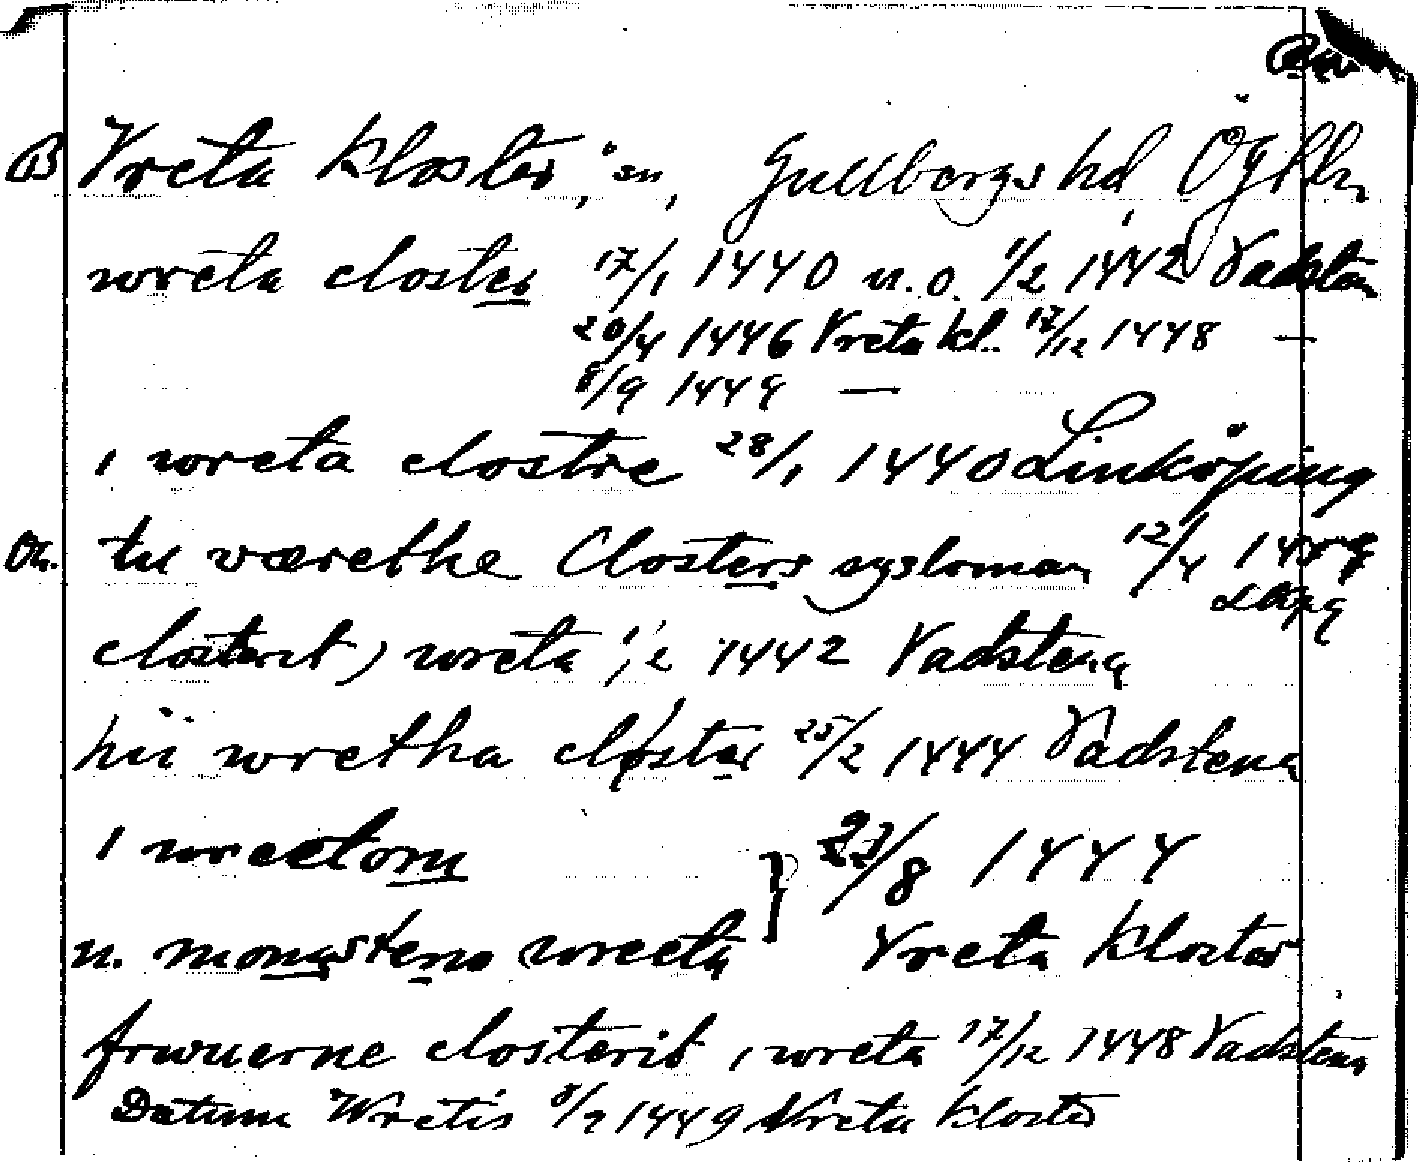 B Vreta Kloster, sn, Gullbergs hd, Ögtl.
wreta closter 17/1 1440 n.o. 1/2 1442 Vadstena
20/4 1446 Vreta kl. 17/12 1448 —
8/9 1449 —
i wreta clostre 28/1 1440 Linköping
Ou. tu væretke Closters sysloman 12/4 1449
Lkpg
closterit i wreta 1/2 1442 Vadstena
hii wretha closter 25/2 1444 Vadstena
i wreetom } 27/8 1444
n. monasterio wreeta Vreta Kloster
frwuerne closterit i wreta 17/12 1448 Vadstena
Datum Wretis 8/9 1449 Vreta Kloster